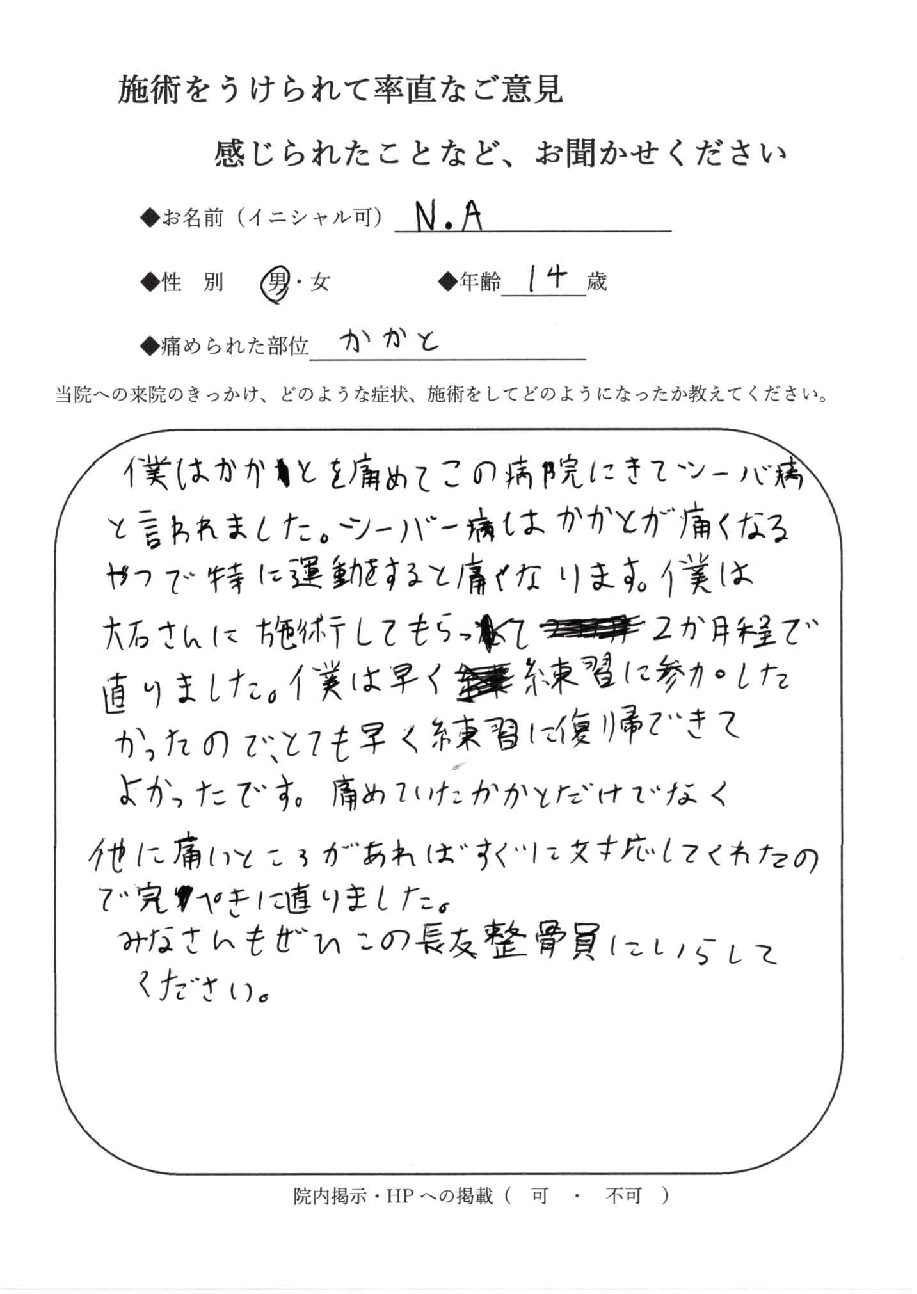 施術をうけられて率直なご意見
感じられたことなど、お聞かせください
◆お名前（イニシャル可） N.A
◆性 別 男・女 ◆年齢 14 歳
◆痛められた部位 かかと
当院への来院のきっかけ、どのような症状、施術をしてどのようになったか教えてください。
僕はかかとを痛めてこの病院にきてシーバ病
と言われました。シーバー病はかかとが痛くなる
やつで特に運動をすると痛くなります。僕は
大石さんに施術してもらって 2か月程で
直りました。僕は早く 練習に参加した
かったので、とても早く練習に復帰できて
よかったです。痛めていたかかとだけでなく
他に痛いところがあればすぐに対応してくれたの
で完ぺきに直りました。
みなさんもぜひこの長友整骨員にいらして
ください。
院内掲示・HPへの掲載（ 可 ・ 不可 ）